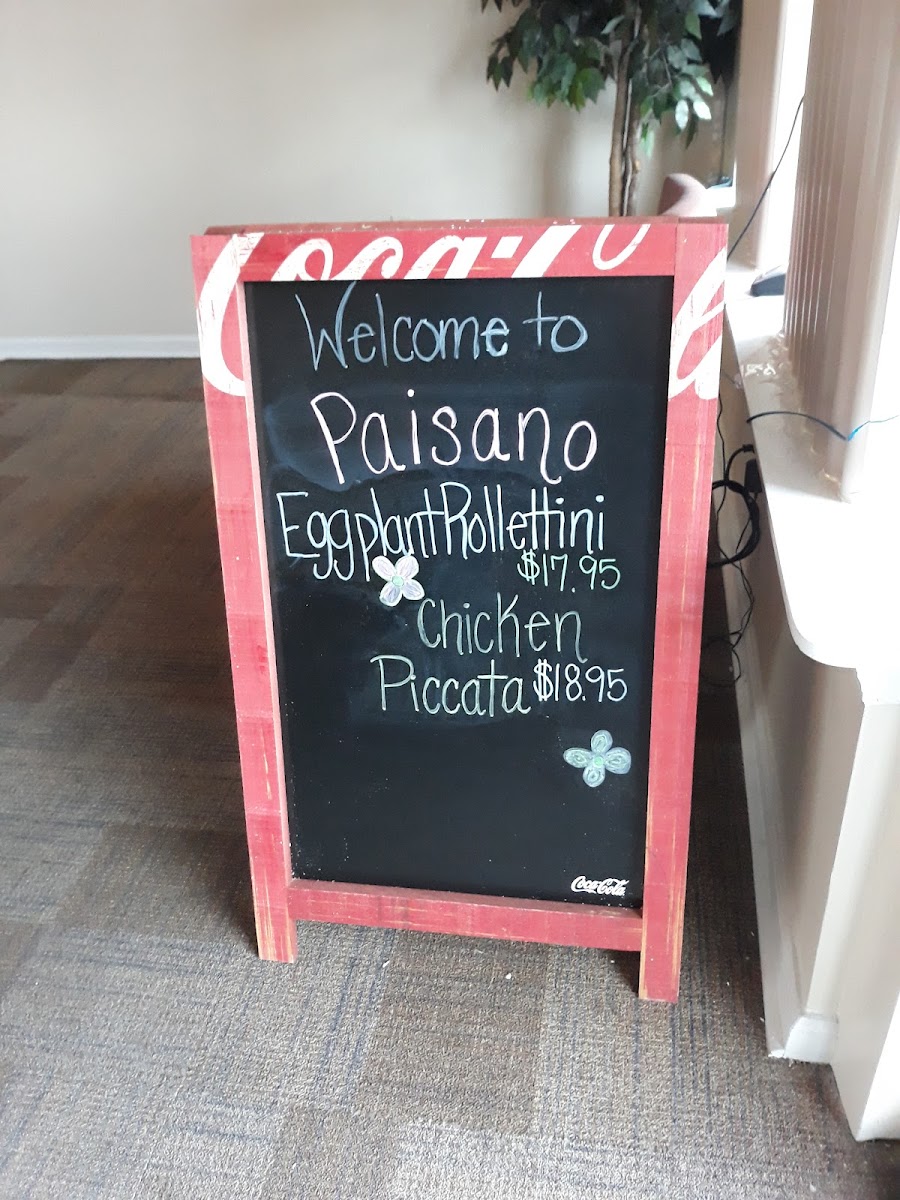 Coca-Cola
Welcome to
Paisano
Eggplant Rollettini
$17.95
Chicken
Piccata $18.95
Coca-Cola